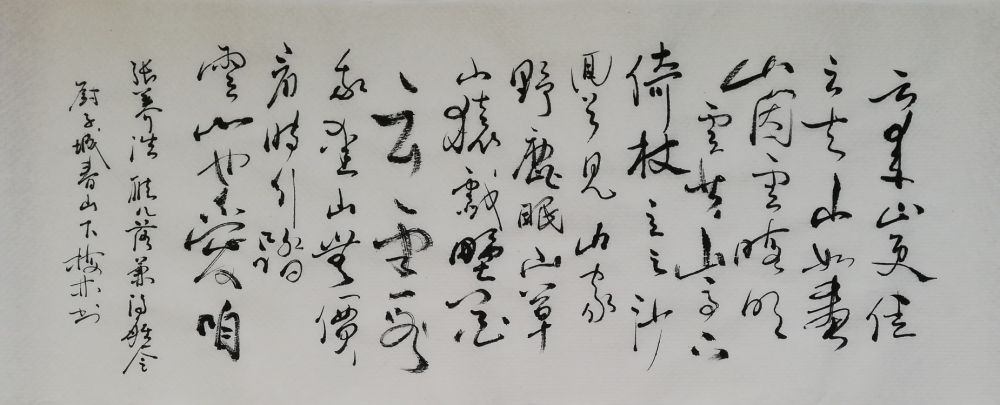 云来山更佳
云去山如畫
山因雲晦明
雲共山高下
倚杖立云沙
回首見山家
野鹿眠山草
山猿戲野花
云霞
我愛山無價
看時行踏
雲山也愛咱
張養浩 雁儿落兼得勝令
子城春山下